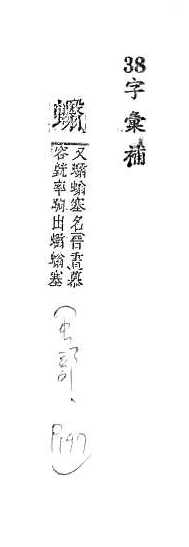 38字彙補
蠮
又蠮螉塞名晉書慕
容皝率騎出蠮螉塞
(虫部、
P197)